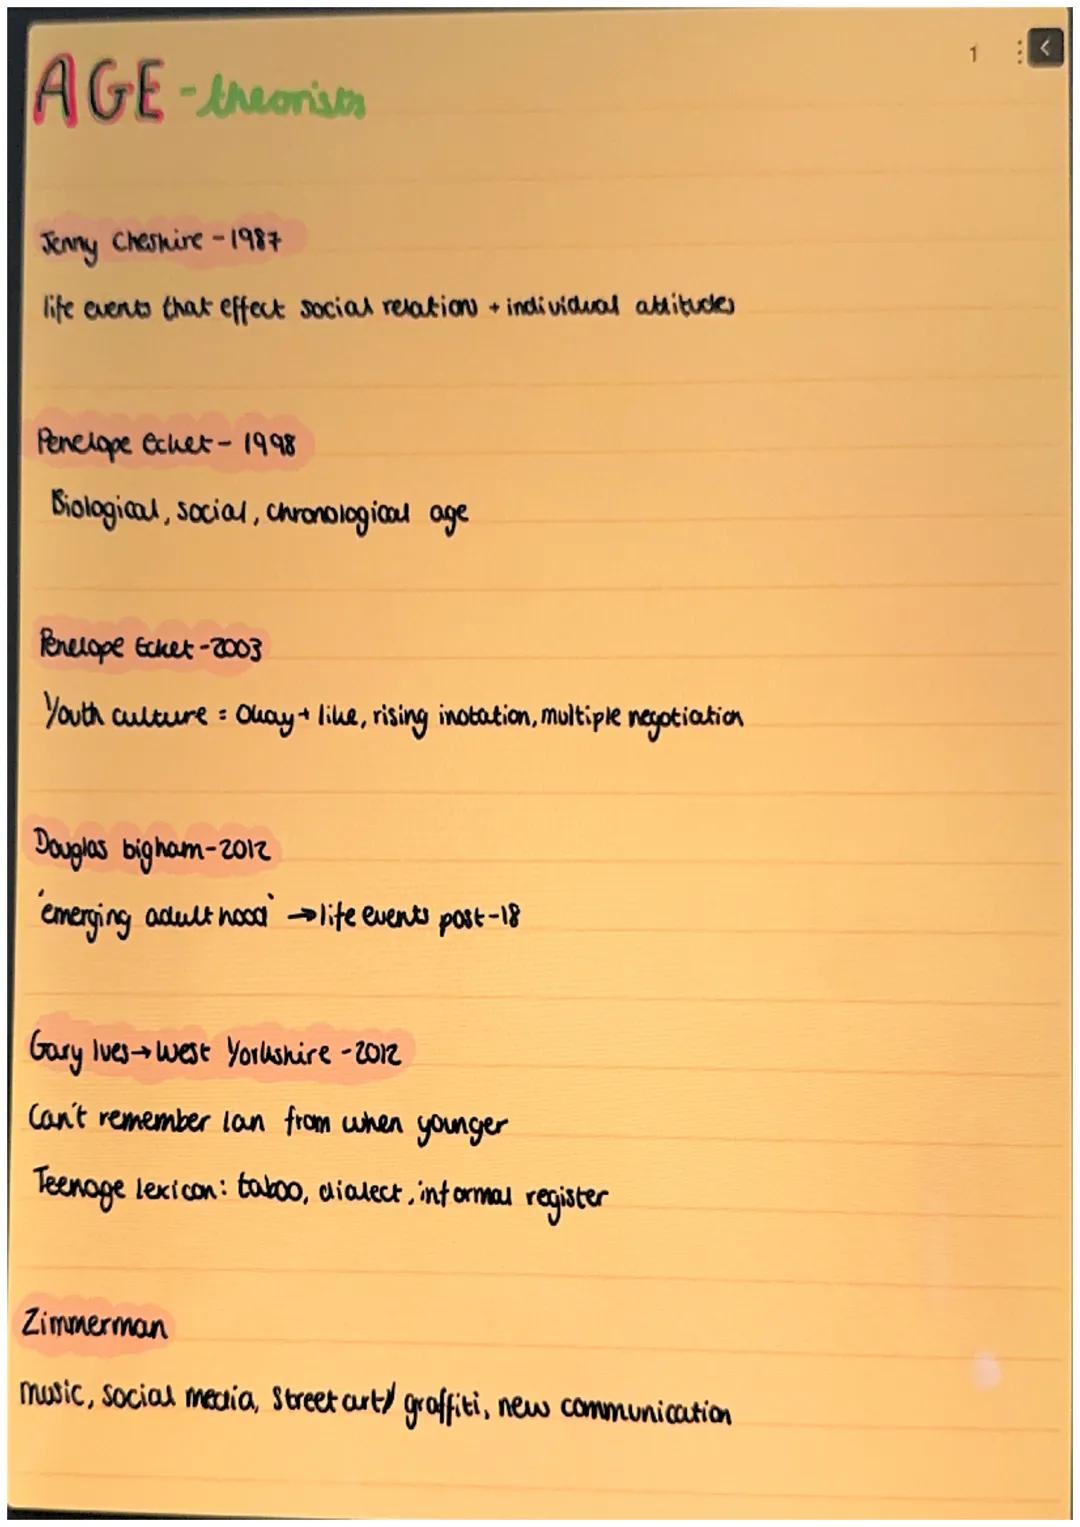 1
AGE - theorists
Jenny Cheshire - 1987
life events that effect social relations + individual attitudes
Penelope Ecket - 1998
Biological, social, chronological age
Penelope Ecket - 2003
Youth culture = Okay + like, rising inotation, multiple negotiation
Douglas bigham - 2012
'emerging adulthood' → life events post-18
Gary Ives → West Yorkshire - 2012
Can't remember lan from when younger
Teenage lexicon: taboo, dialect, informal register
Zimmerman
music, social media, street art/ graffiti, new communication